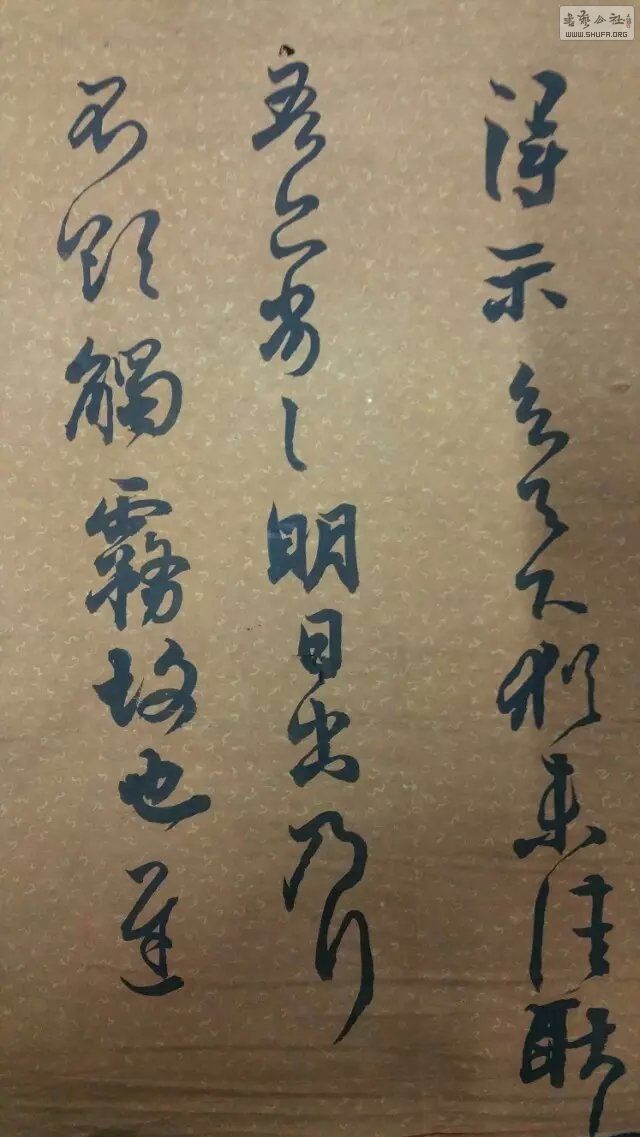 得示知足下猶未佳耿
吾亦劣〻明日出乃行
不欲觸霧故也遲
書藝公社
WWW.SHUFA.ORG